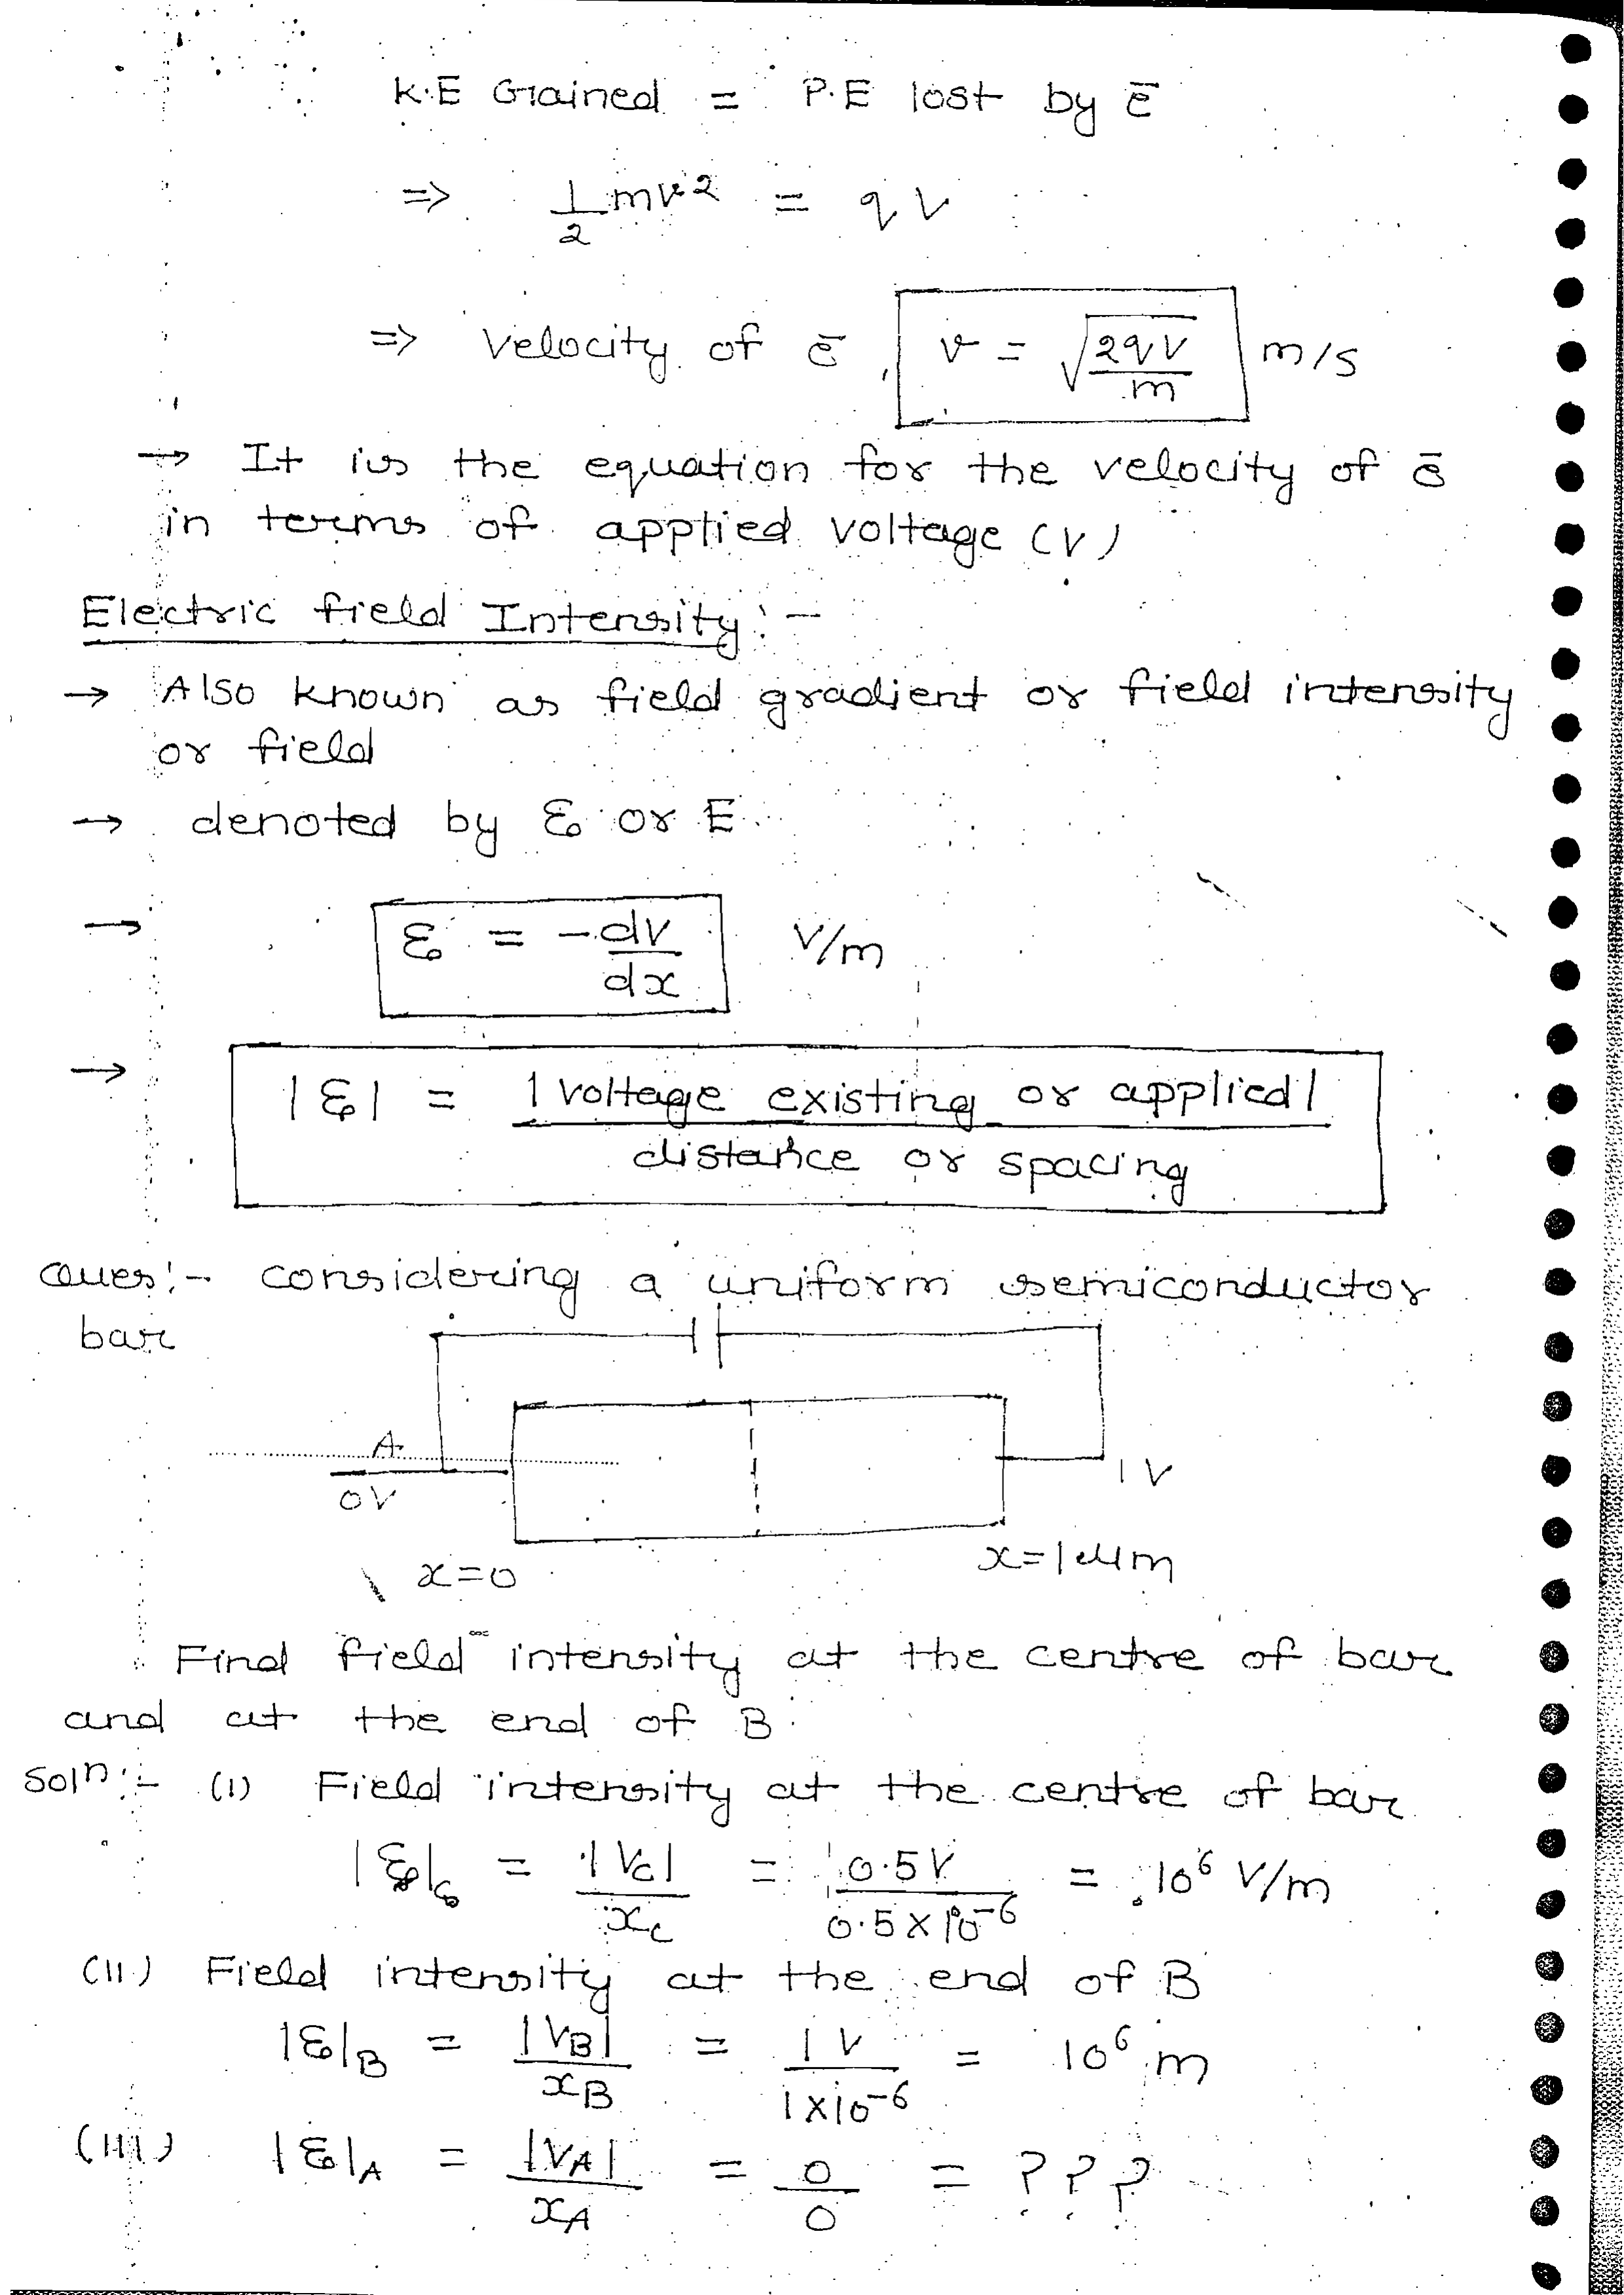 K.E Gained = P.E lost by ē
⇒ 1/2 mv² = qV
⇒ Velocity of ē, v = √(2qV/m) m/s
→ It is the equation for the velocity of ē
in terms of applied voltage (V)
Electric field Intensity :-
→ Also known as field gradient or field intensity
or field
→ denoted by ℰ or E
→ ℰ = -dV/dx V/m
→ |ℰ| = |voltage existing or applied| / distance or spacing
Ques:- considering a uniform semiconductor
bar
A
0V
1V
x=0
x=1μm
Find field intensity at the centre of bar
and at the end of B.
Soln:- (i) Field intensity at the centre of bar
|ℰ|c = |Vc|/xc = 0.5V/0.5×10⁻⁶ = 10⁶ V/m
(ii) Field intensity at the end of B
|ℰ|B = |VB|/xB = 1V/1×10⁻⁶ = 10⁶ m
(iii) |ℰ|A = |VA|/xA = 0/0 = ???